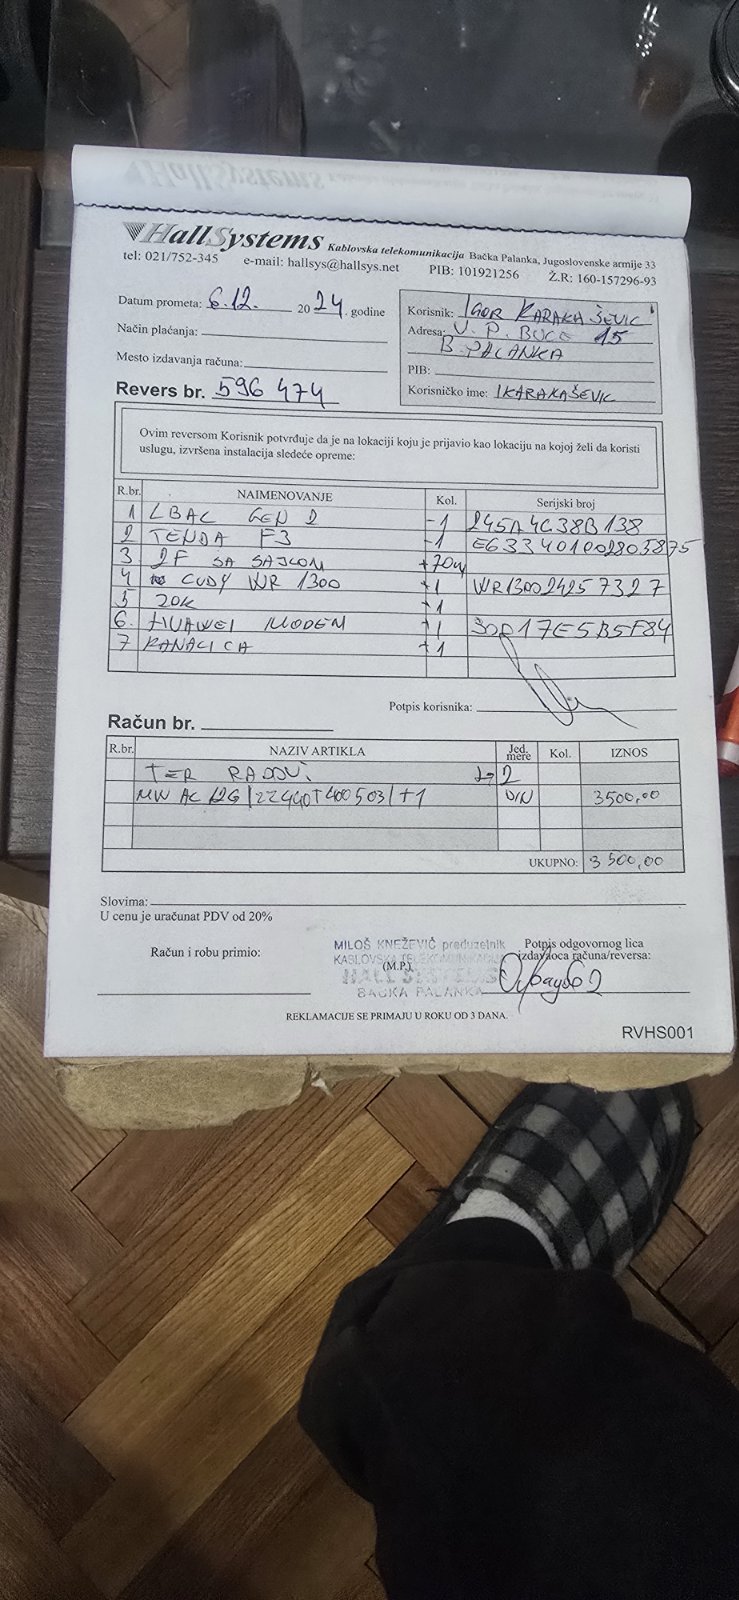 HallSystems Kablovska telekomunikacija Bačka Palanka, Jugoslovenske armije 33
tel: 021/752-345 e-mail: hallsys@hallsys.net PIB: 101921256 Ž.R: 160-157296-93
Datum prometa: 6.12. 2024. godine
Način plaćanja:
Mesto izdavanja računa:
Revers br. 596 474
Korisnik: IGOR KARAKAŠEVIC
Adresa: V. P. BUCE 15
B. PALANKA
PIB:
Korisničko ime: IKARAKAŠEVIC
Ovim reversom Korisnik potvrđuje da je na lokaciji koju je prijavio kao lokaciju na kojoj želi da koristi
uslugu, izvršena instalacija sledeće opreme:
R.br. NAIMENOVANJE Kol. Serijski broj
1 LBAC GEN 2 -1 245A4C38B138
2 TENDA F3 -1 E6334010028035875
3 2F SA SAJLOM +70m
4 CUDY WR 1300 +1 WR130024257327
5 20K +1
6. HUAWEI MODEM +1
7 KANALICA +1
Potpis korisnika:
Račun br.
R.br. NAZIV ARTIKLA Jed. mere Kol. IZNOS
TER RADOVI 2
MW AC 12G/22440T400503/+1 DIN 3500,00
UKUPNO: 3 500,00
Slovima:
U cenu je uračunat PDV od 20%
Račun i robu primio:
MILOŠ KNEŽEVIĆ preduzetnik
KABLOVSKA TELEKOMUNIKACIJA
(M.P.)
HALL SYSTEMS
BAČKA PALANKA
Potpis odgovornog lica
izdavaoca računa/reversa:
REKLAMACIJE SE PRIMAJU U ROKU OD 3 DANA.
RVHS001